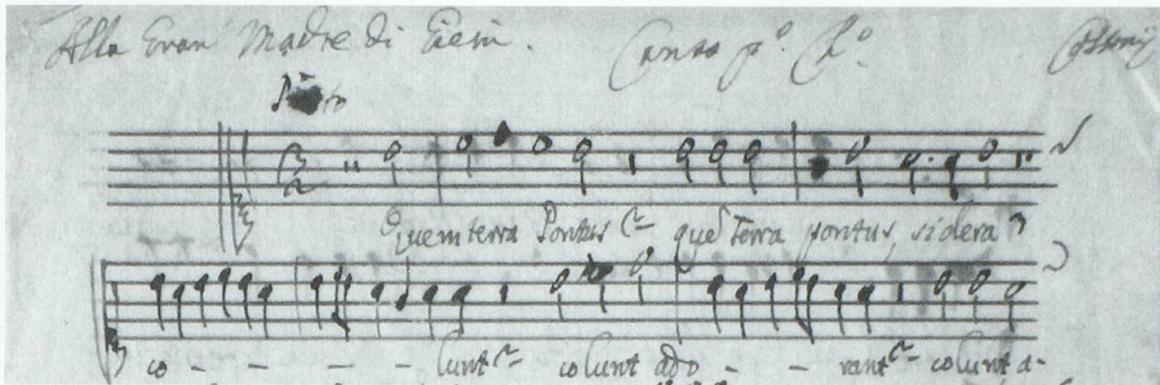 Alla Gran Madre di Canto pº. Cº.
Quem terra Pontus &c quē Terra pontus sidera
co - - - - lunt &c colunt ado - - rant &c colunt a-